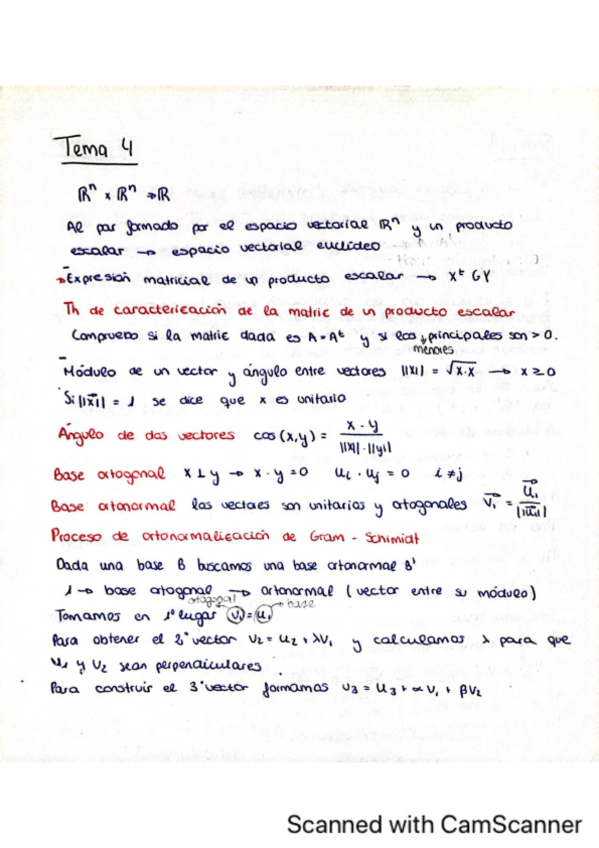 Tema 4
ℝⁿ × ℝⁿ → ℝ
Al par formado por el espacio vectorial ℝⁿ y un producto
escalar → espacio vectorial euclídeo
→ Expresión matricial de un producto escalar → Xᵗ G Y
Th de caracterización de la matriz de un producto escalar
Compruebo si la matriz dada es A = Aᵗ y si los principales son > 0.
menores
Módulo de un vector y ángulo entre vectores ||x|| = √x·x → x ≥ 0
Si ||x|| = 1 se dice que x es unitario
Ángulo de dos vectores cos (x,y) = x · y / ||x|| · ||y||
Base ortogonal x ⊥ y → x · y = 0 uᵢ · uⱼ = 0 i ≠ j
Base ortonormal los vectores son unitarios y ortogonales v₁ = u₁ / ||u₁||
Proceso de ortonormalización de Gram - Schimidt
Dada una base B buscamos una base ortonormal B'
1 → base ortogonal → ortonormal (vector entre su módulo)
ortogonal → base
Tomamos en 1º lugar v₁ = u₁
Para obtener el 2º vector v₂ = u₂ + λv₁ y calculamos λ para que
v₁ y v₂ sean perpendiculares
Para construir el 3º vector formamos v₃ = u₃ + αv₁ + βv₂
Scanned with CamScanner